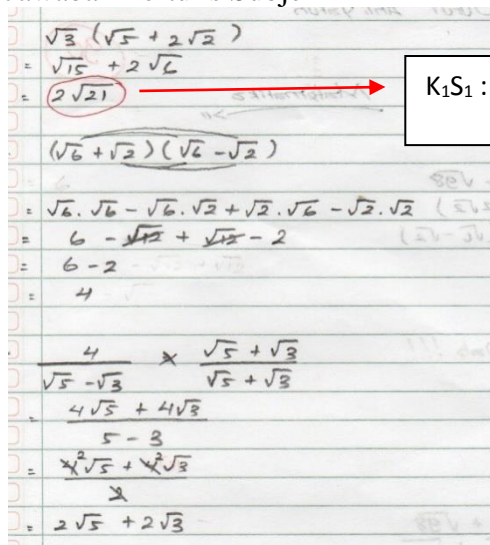 √3 (√5 + 2√2)
= √15 + 2√6
= 2√21
K₁S₁ :
(√6 + √2) (√6 - √2)
= √6 . √6 - √6 . √2 + √2 . √6 - √2 . √2
= 6 - √12 + √12 - 2
= 6 - 2
= 4
4/(√5 - √3) × (√5 + √3)/(√5 + √3)
= (4√5 + 4√3)/(5 - 3)
= (4²√5 + 4²√3)/2
= 2√5 + 2√3